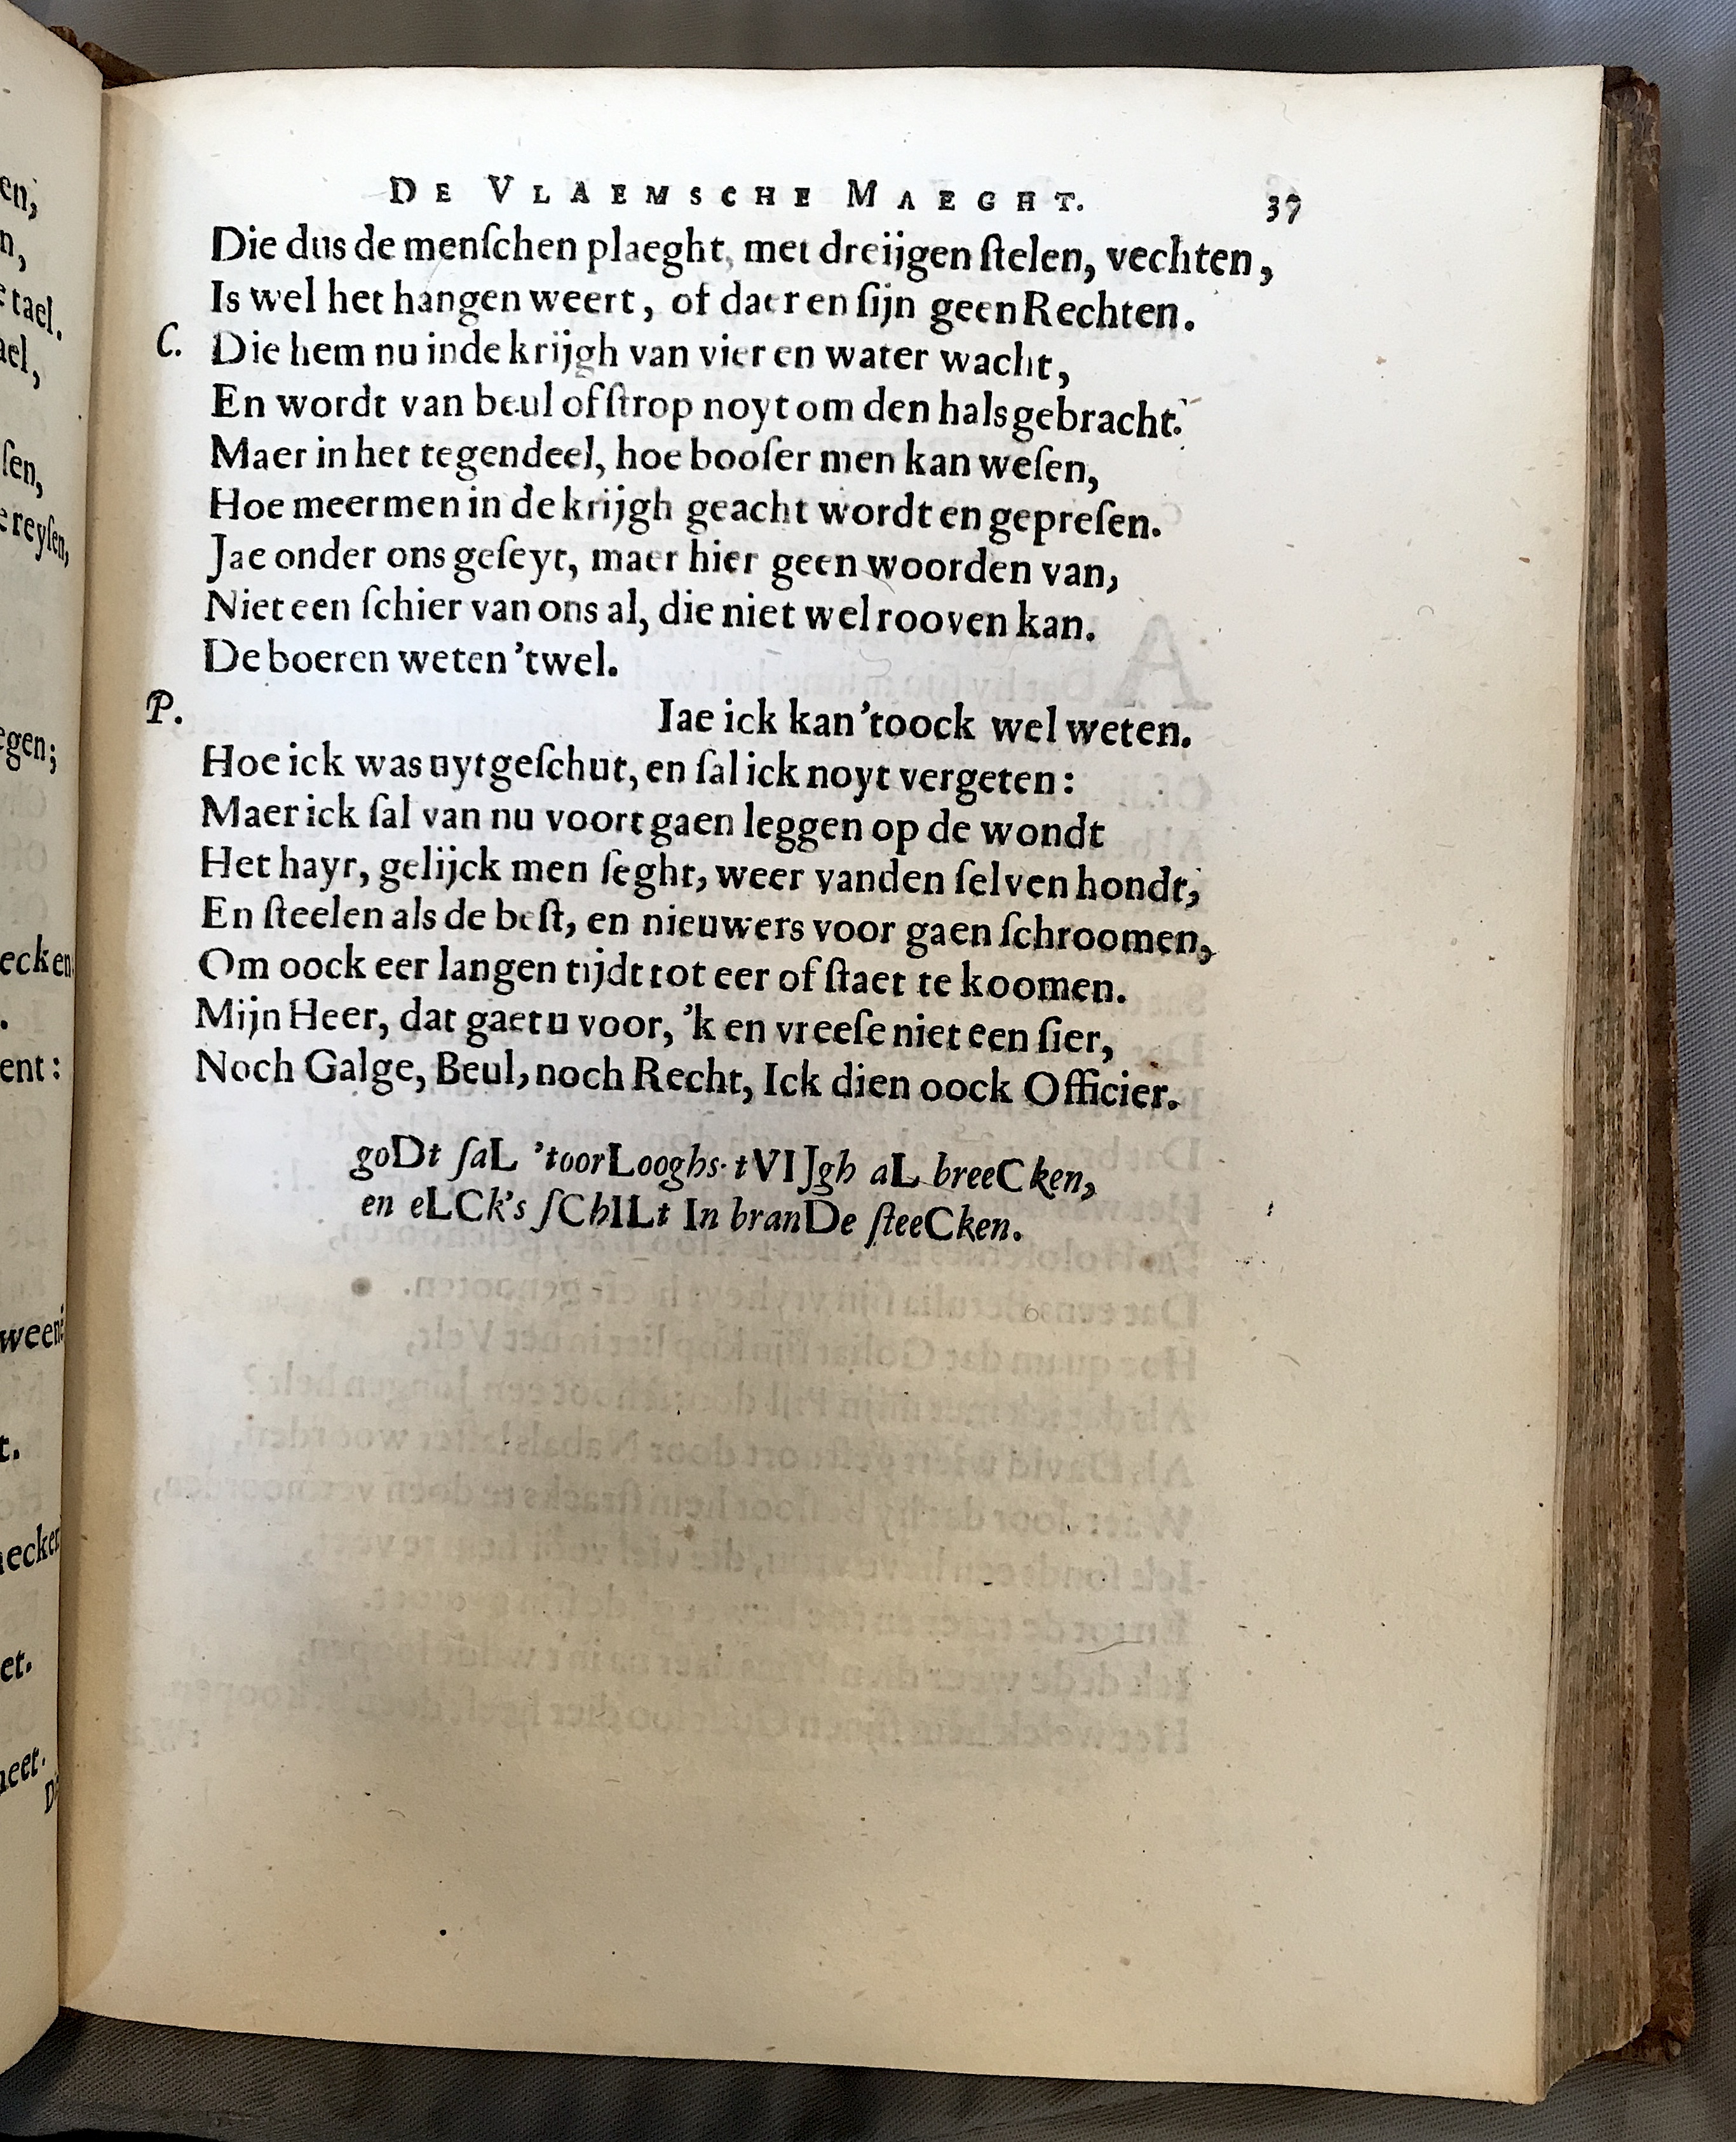 DE VLAEMSCHE MAEGHT. 37
Die dus de menſchen plaeght, met dreijgen ſtelen, vechten,
Is wel het hangen weert, of daer en ſijn geen Rechten.
C. Die hem nu inde krijgh van vier en water wacht,
En wordt van beul of ſtrop noyt om den hals gebracht.
Maer in het tegendeel, hoe booſer men kan weſen,
Hoe meer men in de krijgh geacht wordt en gepreſen.
Jae onder ons geſeyt, maer hier geen woorden van,
Niet een ſchier van ons al, die niet wel rooven kan.
De boeren weten 'twel.
P. Iae ick kan 'toock wel weten.
Hoe ick was uytgeſchut, en ſal ick noyt vergeten:
Maer ick ſal van nu voort gaen leggen op de wondt
Het hayr, gelijck men ſeght, weer vanden ſelven hondt,
En ſteelen als de beſt, en nieuwers voor gaen ſchroomen,
Om oock eer langen tijdt tot eer of ſtaet te koomen.
Mijn Heer, dat gaet u voor, 'k en vreeſe niet een ſier,
Noch Galge, Beul, noch Recht, Ick dien oock Officier.
goDt ſaL 'toorLooghs-tVIJgh aL breeCken,
en eLCk's ſChILt In branDe ſteeCken.
en,
n,
tael.
ael,
ſen,
reyſen,
egen;
ecken
ent:
ween
t.
ecker
et.